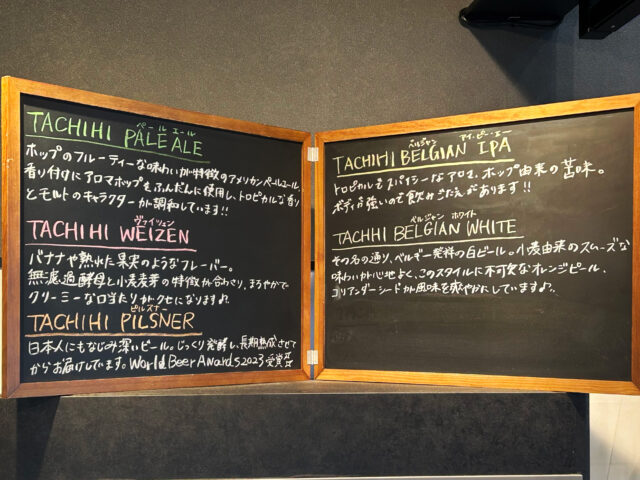 ペールエール
TACHIHI PALE ALE
ホップのフルーティーな味わいが特徴のアメリカンペールエール。
香り付けにアロマホップをふんだんに使用し、トロピカルな香り
とモルトのキャラクターが調和しています!!
ヴァイツェン
TACHIHI WEIZEN
バナナや熟れた果実のようなフレーバー。
無濾過酵母と小麦麦芽の特徴が合わり、まろやかで
クリーミーな口当たりがクセになります♪
ピルスナー
TACHIHI PILSNER
日本人にもなじみ深いビール。じっくり発酵し、長期熟成させて
からお届けしています。World Beer Awards 2023 受賞
ベルジャン アイ・ピー・エー
TACHIHI BELGIAN IPA
トロピカルでスパイシーなアロマ、ホップ由来の苦味。
ボディが強いので飲みごたえがあります!!
ベルジャン ホワイト
TACHHI BELGIAN WHITE
その名の通り、ベルギー発祥の白ビール。小麦由来のスムーズな
味わいが心地よく、このスタイルに不可欠なオレンジピール、
コリアンダーシードが風味を爽やかにしています♪